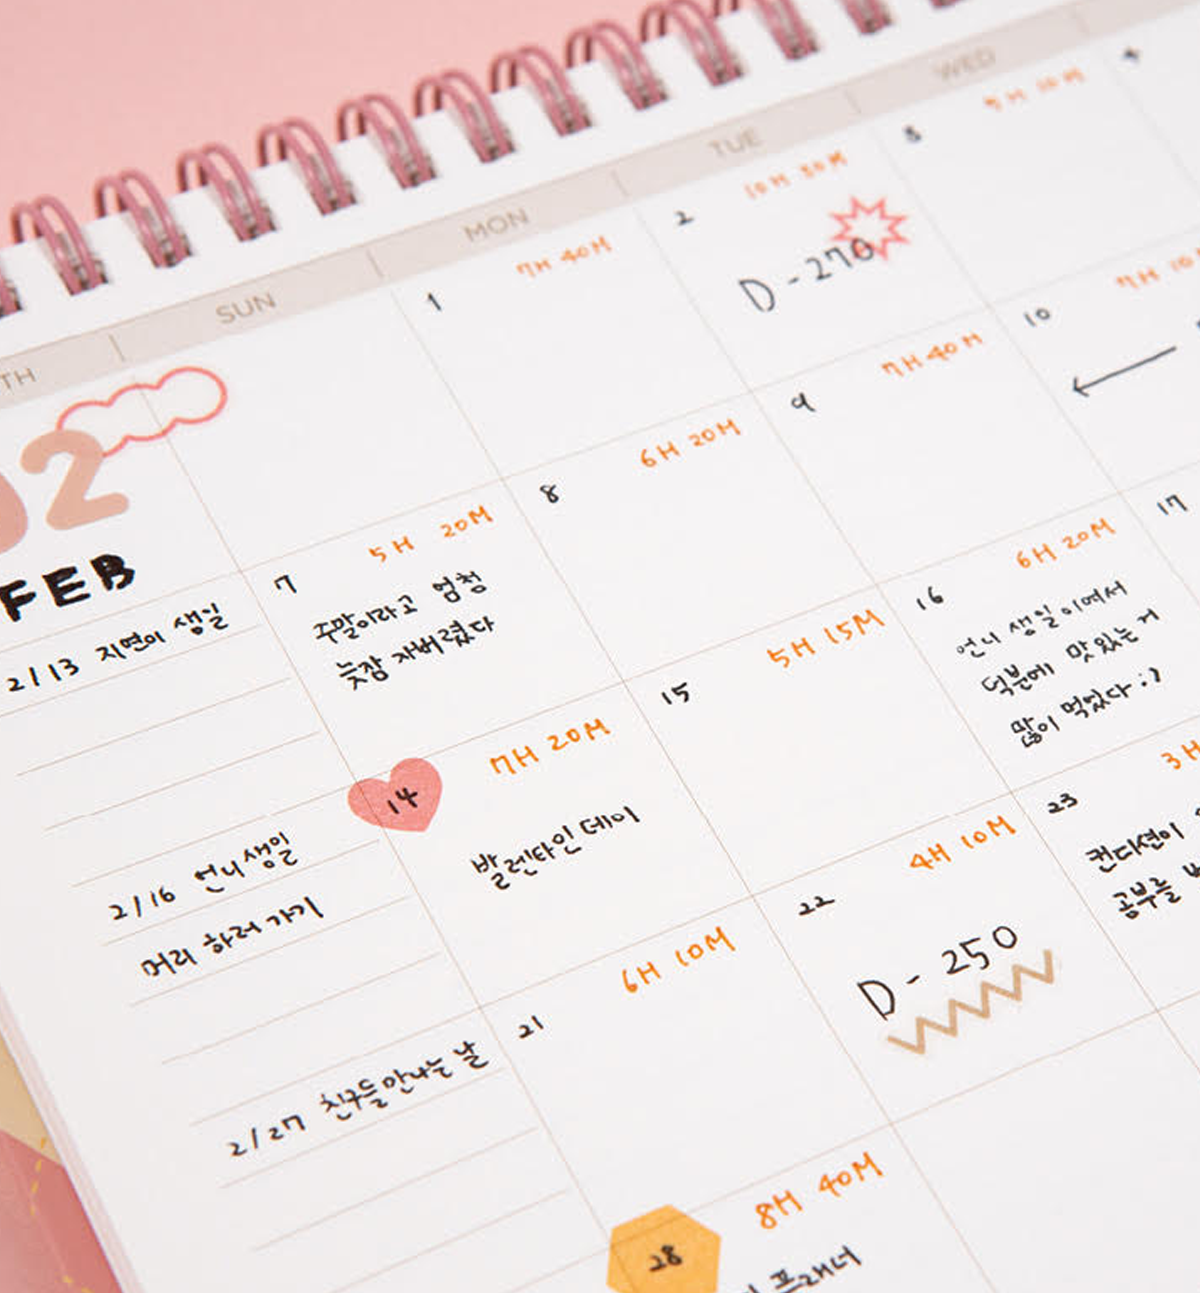 TH
SUN
MON
TUE
WED
02
FEB
2/13 지면이 생일
2/16 언니 생일
머리 하러 가기
2/27 친구들 만나는 날
1
7H 40M
2
10H 50M
D-270
3
4
7
5H 20M
주말이라고 엄청
늦잠 자버렸다
8
6H 20M
9
7H 40M
10
14
7H 20M
발렌타인 데이
15
5H 15M
16
6H 20M
언니 생일이여서
덕분에 맛있는거
많이 먹었다 :)
17
21
6H 10M
22
4H 10M
D-250
23
3H
컨디션이
공부를
28
8H 40M
프래너